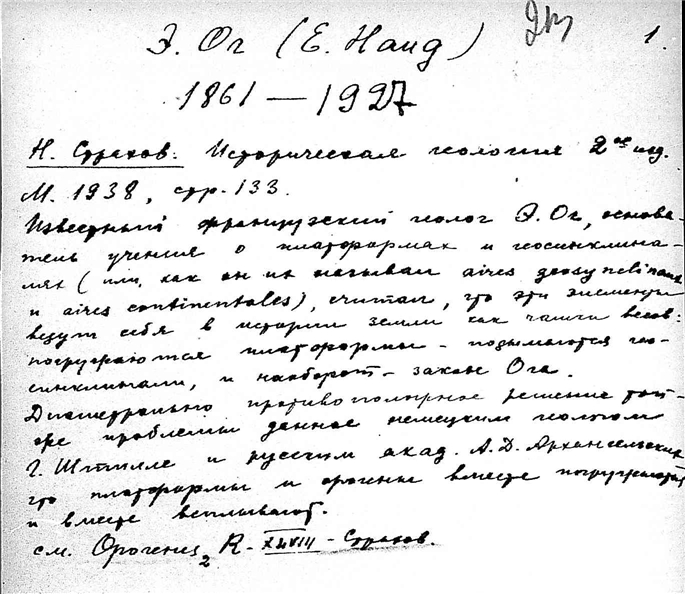 Э. Ог (E. Haug) 1.
1861 — 1927
Н. Страхов: Историческая геология 2ое изд.
М. 1938, стр. 133.
Известный французский геолог Э. Ог, основа-
тель учения о платформах и геосинклина-
лях (или, как он их называл aires geosynclinaux
и aires continentales), считал, что эти элементы
ведут себя в истории земли как чашки весов:
погружаются платформы - подымаются гео-
синклинали, и наоборот - закон Ога.
Диаметрально противоположное решение той-
же проблемы данное немецким геологом
Г. Штилле и русским акад. А. Д. Архангельским
что платформы и орогены вместе погружаются
и вместе всплывают.
см. Орогениз₂ R - XLVIII - Страхов.